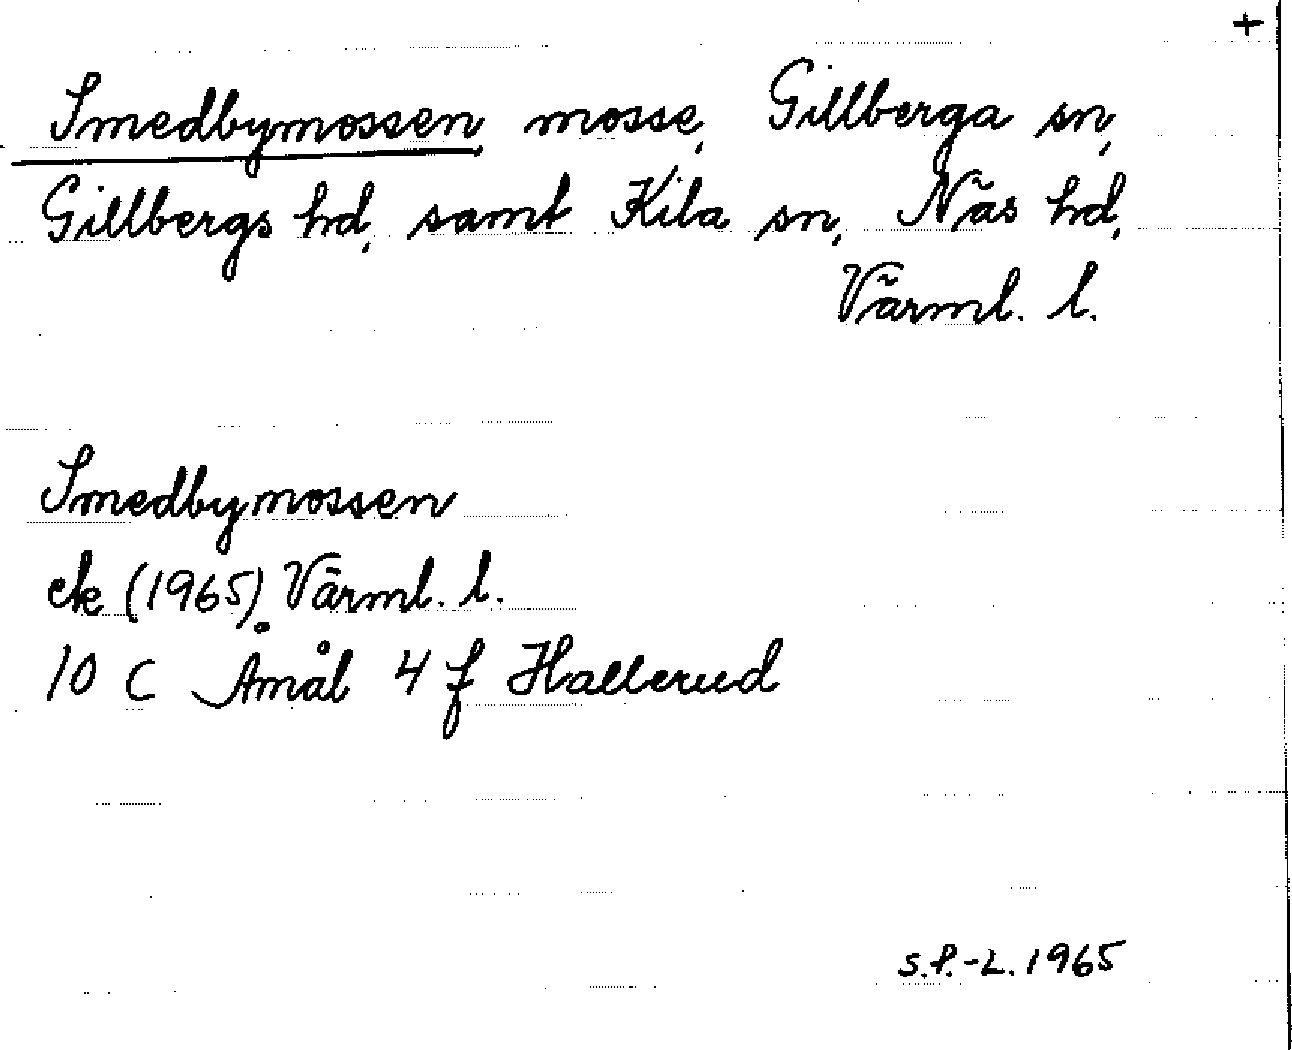 +
Smedbymossen, mosse, Gillberga sn,
Gillbergs hd, samt Kila sn, Näs hd,
Värml. l.
Smedbymossen
ek (1965) Värml. l.
10 C Åmål 4 f Hallerud
S.P.-L. 1965